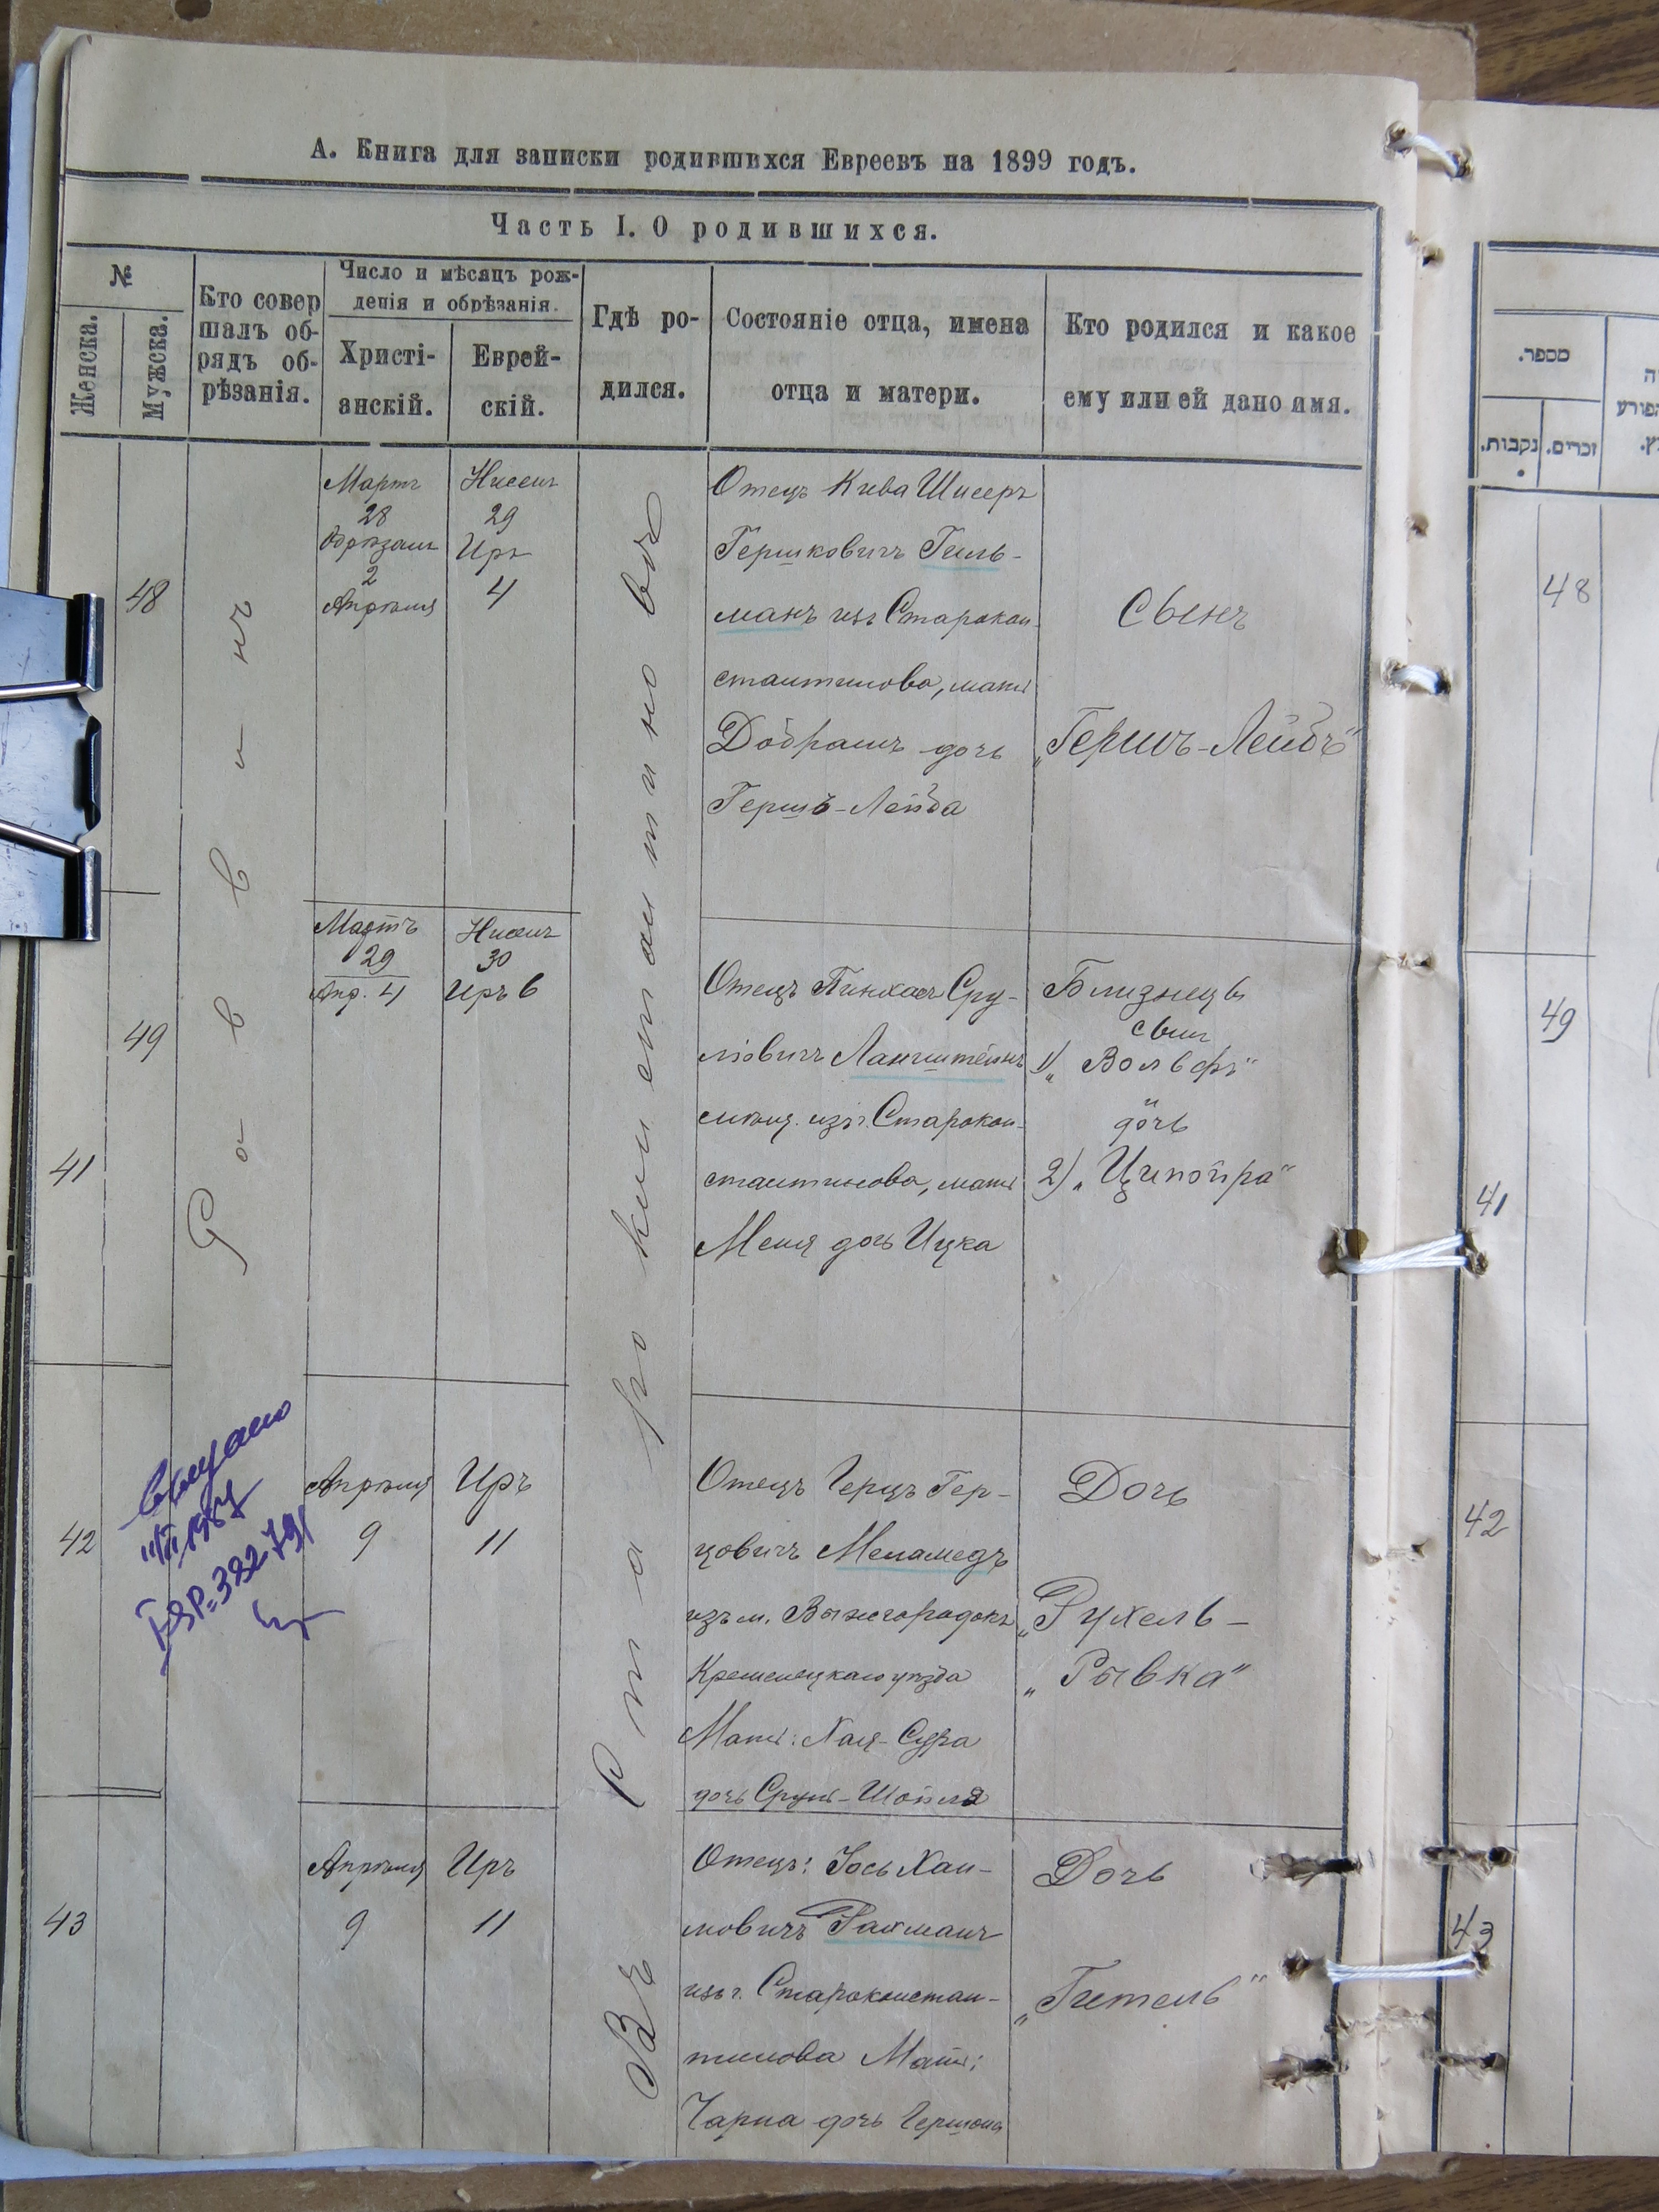 А. Книга для записки родившихся Евреевъ на 1899 годъ.
Часть I. О родившихся.
№
Женска.
Мужска.
Кто совер
шалъ об-
рядъ об-
рѣзанія.
Число и мѣсяцъ рож-
денія и обрѣзанія.
Христі-
анскій.
Еврей-
скій.
Гдѣ ро-
дился.
Состояніе отца, имена
отца и матери.
Кто родился и какое
ему или ей дано имя.
Раввинъ
Въ г. Староконстантиновѣ
48
Мартъ
28
Обрѣзанъ
2
Апрѣля
Нисенъ
29
Иръ
4
Отецъ Кива Шисеръ
Гершковичъ Гель-
манъ изъ Старокон-
стантинова, мать
Добрашъ дочь
Гершъ-Лейба
Сынъ
„Гершъ-Лейбъ"
49
41
Мартъ
29
Апр. 4
Нисенъ
30
Иръ 6
Отецъ Пинхасъ Сру-
лiовичъ Лангштейнъ
изъ г. Старокон-
стантинова, мать
Меня дочь Ицка
Близнецы
сынъ
1) „Вольфъ"
и
дочь
2) „Ципойра"
42
Апрѣля
9
Иръ
11
Отецъ Герцъ Гер-
цовичъ Меламедъ
изъ м. Вышгородокъ
Кременецкаго уѣзда
Мать: Хая-Сура
дочь Сруль-Шойля
Дочь
„Рухель-
„Рывка"
43
Апрѣля
9
Иръ
11
Отецъ: Іось Хаи-
мовичъ Рахманъ
изъ г. Староконстан-
тинова Мать:
Чарна дочь Гершона
Дочь
„Гитель"
מספר.
נקבות.
זכרים.
48
49
41
42
43